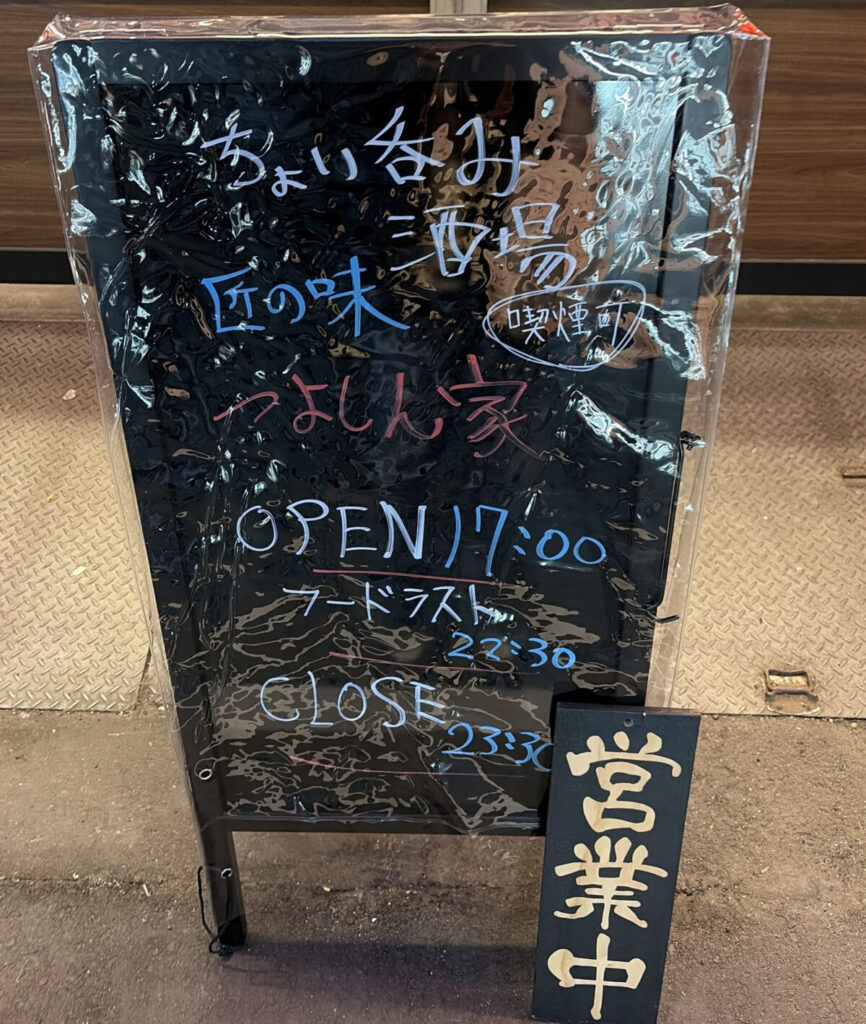 ちょい呑み
酒場
匠の味
喫煙可
つよしん家
OPEN 17:00
フードラスト
22:30
CLOSE
23:30
営業中